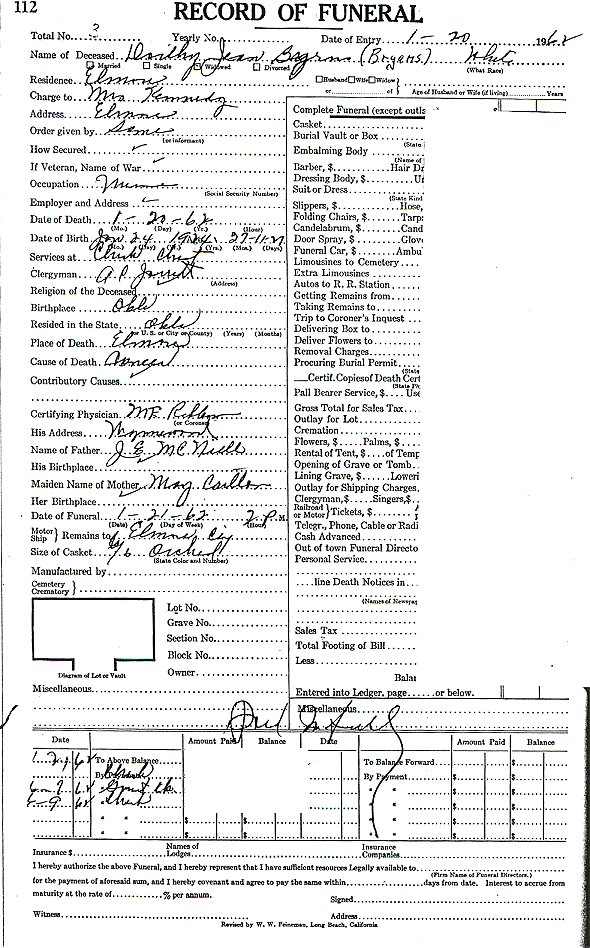 112
RECORD OF FUNERAL
Total No. 3 Yearly No. Date of Entry 1-20 1962
Name of Deceased Dorthy Jean Bryans (Bryans) White
Married Single Widowed Divorced (What Race)
Residence Elmore Husband Wife Widow or of Age of Husband or Wife (if living) Years
Charge to Mrs Kennedy
Address Elmore
Order given by Same
(or informant)
How Secured
If Veteran, Name of War
Occupation
(Social Security Number)
Employer and Address
Date of Death 1-20-62
(Mo.) (Day) (Yr.) (Hour)
Date of Birth Jan. 24 1924 37-11-27
(Mo.) (Day) (Yr.) (Yrs.) (Mos.) (Days)
Services at Church Christ
Clergyman A.P.
(Address)
Religion of the Deceased
Birthplace Okla
Resided in the State Okla
(or U. S. or City or County) (Years) (Months)
Place of Death Elmore
Cause of Death Cancer
Contributory Causes
Certifying Physician
(or Coroner)
His Address
Name of Father J. E. McNeill
His Birthplace
Maiden Name of Mother May
Her Birthplace
Date of Funeral 1-21-62 2 P.M.
(Date) (Day of Week) (Hour)
Motor Ship } Remains to Elmore City
Size of Casket 6/6 Orchid
(State Color and Number)
Manufactured by
Cemetery Crematory }
Lot No.
Grave No.
Section No.
Block No.
Owner
Diagram of Lot or Vault
Miscellaneous
Complete Funeral (except outla
Casket
Burial Vault or Box
(State
Embalming Body
(Name of
Barber, $ Hair Dr
Dressing Body, $ U
Suit or Dress
(State Kind
Slippers, $ Hose,
Folding Chairs, $ Tarp
Candelabrum, $ Cand
Door Spray, $ Glov
Funeral Car, $ Ambu
Limousines to Cemetery
Extra Limousines
Autos to R. R. Station
Getting Remains from
Taking Remains to
Trip to Coroner's Inquest
Delivering Box to
Deliver Flowers to
Removal Charges
Procuring Burial Permit
(State
Certif. Copies of Death Cert
(State Pl
Pall Bearer Service, $ Use
Gross Total for Sales Tax
Outlay for Lot
Cremation
Flowers, $ Palms, $
Rental of Tent, $ of Temp
Opening of Grave or Tomb
Lining Grave, $ Loweri
Outlay for Shipping Charges
Clergyman, $ Singers, $
Railroad or Motor } Tickets, $
Telegr., Phone, Cable or Radi
Cash Advanced
Out of town Funeral Directo
Personal Service
line Death Notices in
(Names of Newspap
Sales Tax
Total Footing of Bill
Less
Balan
Entered into Ledger, page or below.
Miscellaneous
Paid in full
Date Amount Paid Balance Date Amount Paid Balance
62 To Above Balance $ To Balance Forward $
By Payment $ By Payment $
62 Grant ck
6-9 62
Insurance $ Names of Lodges Insurance Companies
I hereby authorize the above Funeral, and I hereby represent that I have sufficient resources Legally available to
(Firm Name of Funeral Directors.)
for the payment of aforesaid sum, and I hereby covenant and agree to pay the same within days from date. Interest to accrue from
maturity at the rate of % per annum.
Signed
Witness Address
Revised by W. W. Feineman, Long Beach, California